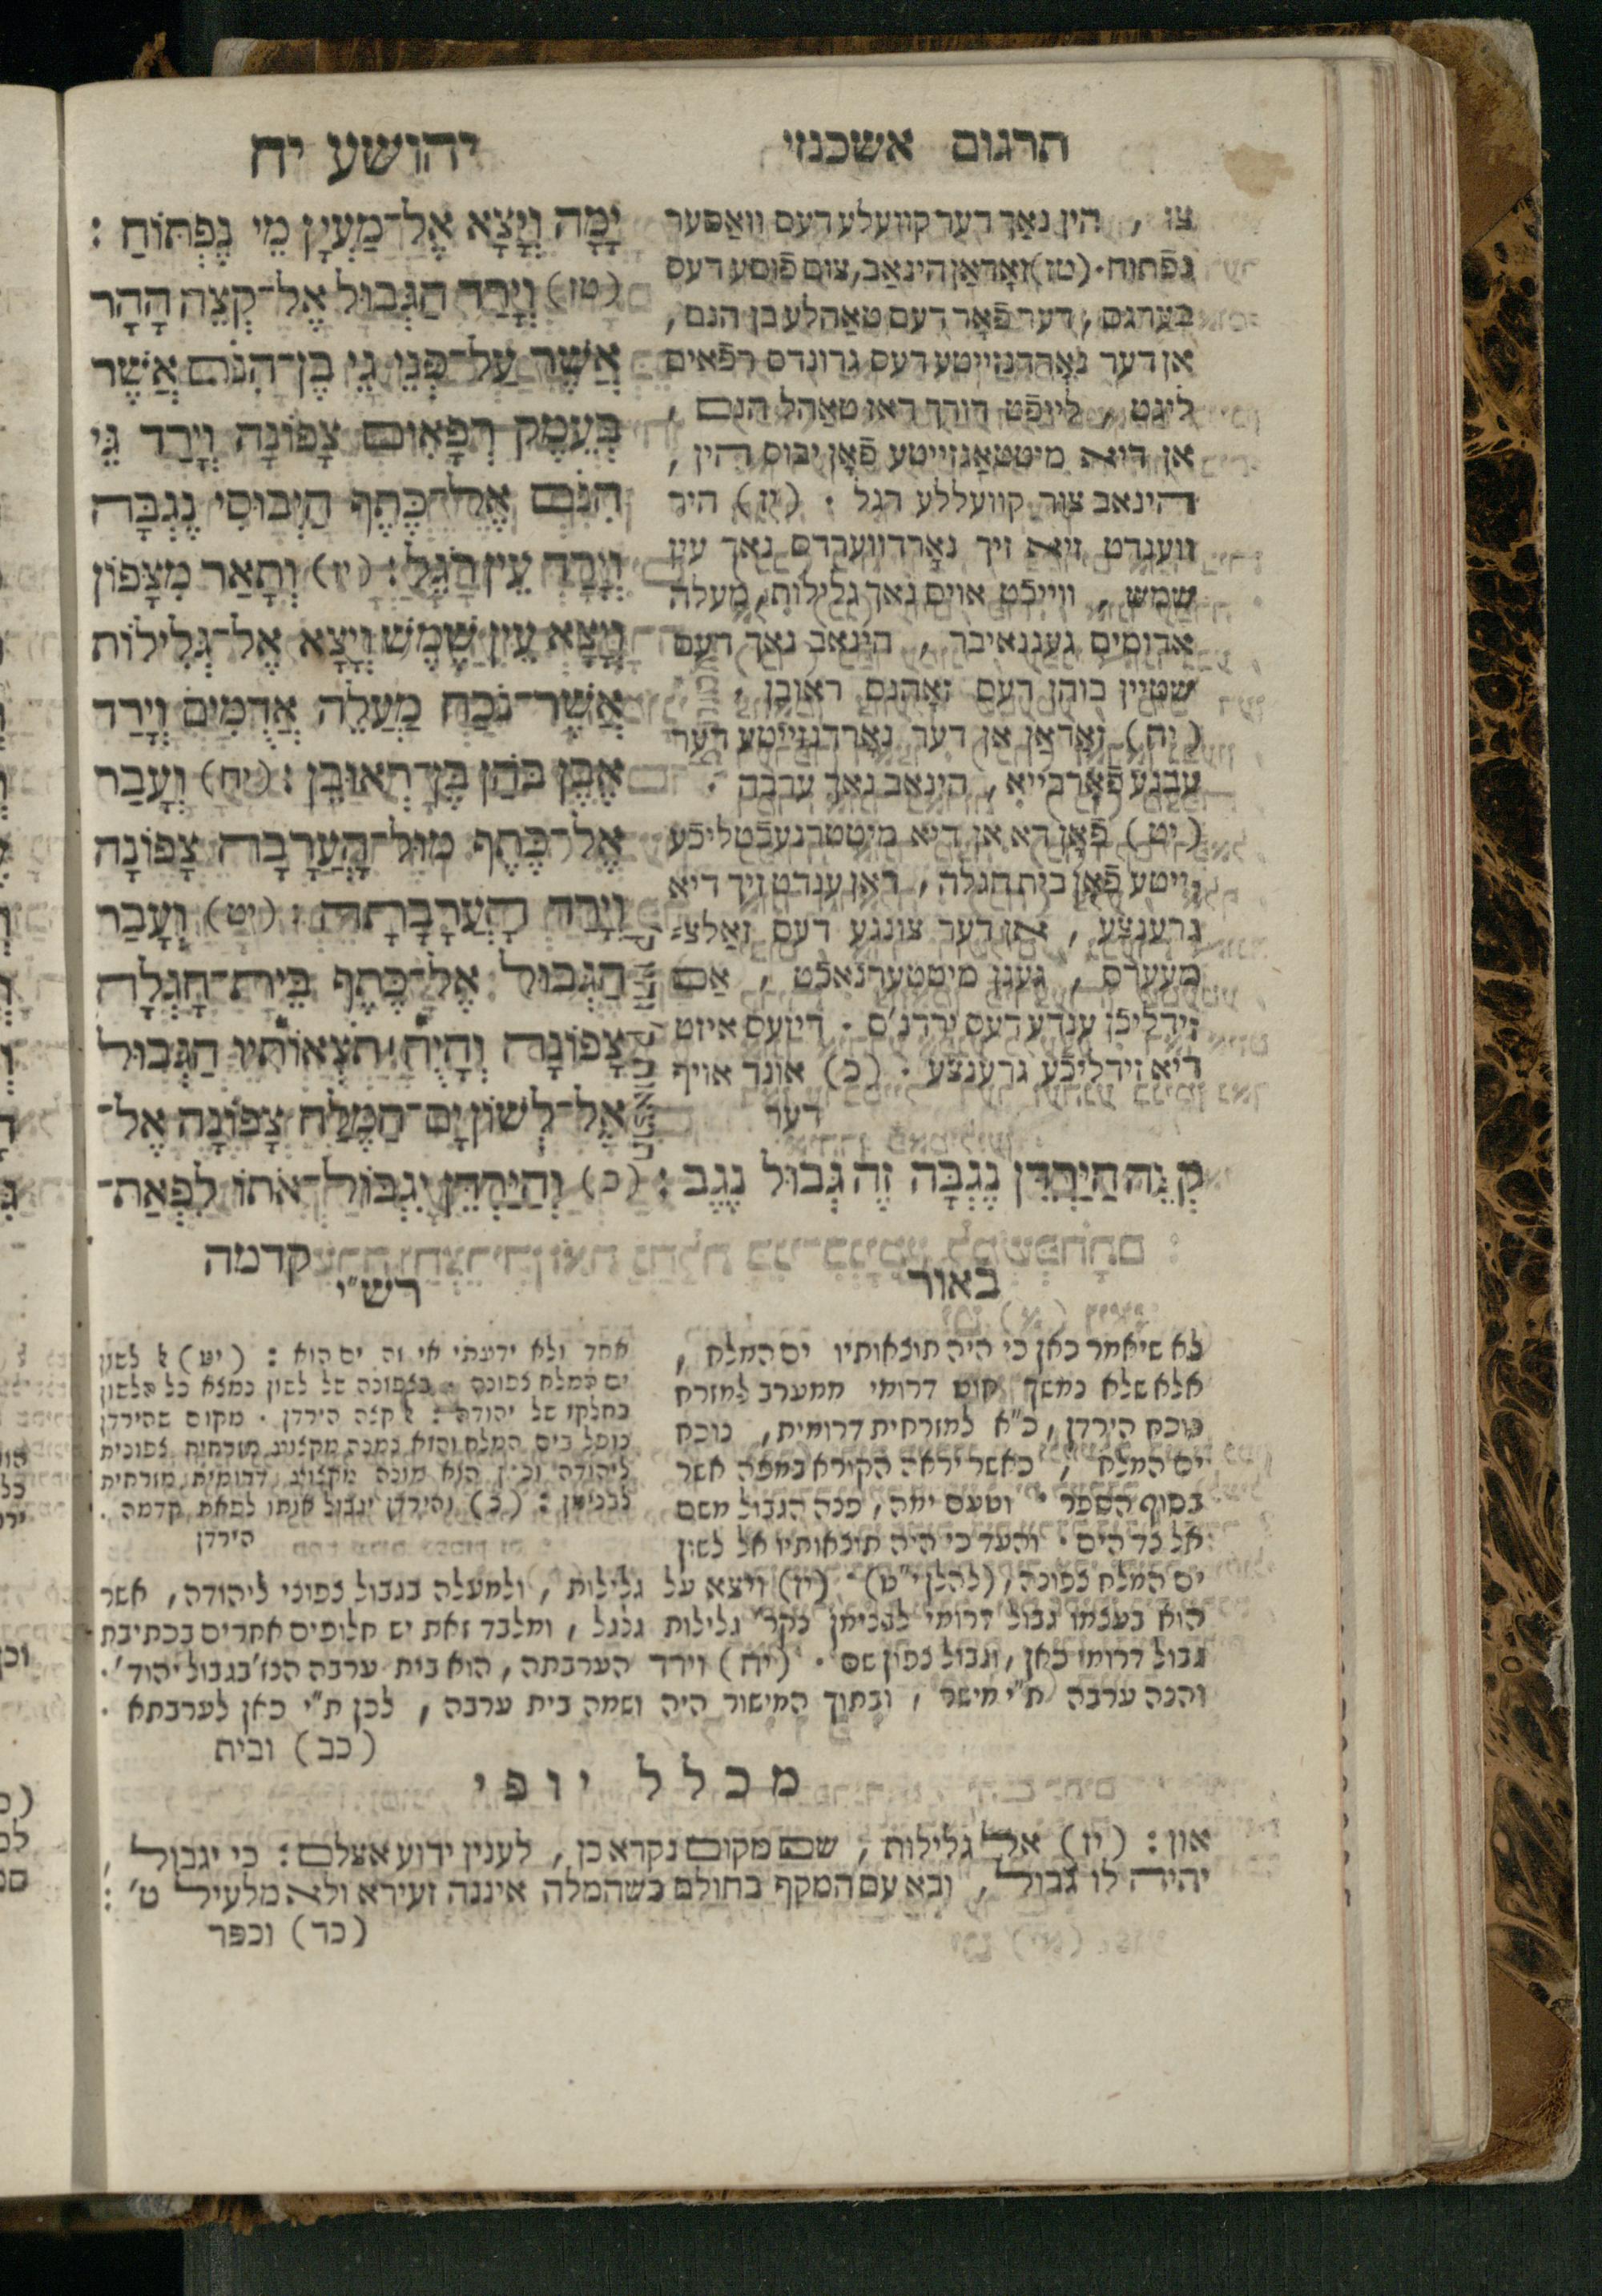 תרגום אשכנזי
יהושע יח
יָמָּה וְיָצָא אֶל־מַעְיַן מֵי נֶפְתּוֹחַ :
(טז) וְיָרַד הַגְּבוּל אֶל־קְצֵה הָהָר
אֲשֶׁר עַל־פְּנֵי גֵּי בֶן־הִנֹּם אֲשֶׁר
בְּעֵמֶק רְפָאִים צָפוֹנָה וְיָרַד גֵּי
הִנֹּם אֶל־כֶּתֶף הַיְבוּסִי נֶגְבָּה
וְיָרַד עֵין רֹגֵל : (יז) וְתָאַר מִצָּפוֹן
וְיָצָא עֵין שֶׁמֶשׁ וְיָצָא אֶל־גְּלִילוֹת
אֲשֶׁר־נֹכַח מַעֲלֵה אֲדֻמִּים וְיָרַד
אֶבֶן בֹּהַן בֶּן־רְאוּבֵן : (יח) וְעָבַר
אֶל־כֶּתֶף מוּל־הָעֲרָבָה צָפוֹנָה
וְיָרַד הָעֲרָבָתָה : (יט) וְעָבַר
הַגְּבוּל אֶל־כֶּתֶף בֵּית־חָגְלָה
צָפוֹנָה וְהָיָה תֹּצְאוֹתָיו הַגְּבוּל
אֶל־לְשׁוֹן יָם־הַמֶּלַח צָפוֹנָה אֶל־
צו , הין נאַך דער קוועלע דעס וואַסער
נפֿתוח . (טז) זאָדאַן הינאַב, צום פֿוסע דעס
בערגס , דער פֿאָר דעם טאַהלע בן הנם ,
אן דער נאָרדזייטע דעס גרונדס רפֿאים
ליגט , לייפֿט דורך דאז טאַהל הנם ,
אן דיא מיטטאַגזייטע פֿאָן יבוס הין ,
הינאב צור קוועללע רגל . (יז) היר
ווענדט זיא זיך נאָרדווערדס נאך עין
שמש , ווייכֿט אויס נאך גלילות , מעלה
אדומים געגנאיבר , הינאב נאך דעם
שטיין בוהן דעס זאָהנס ראובן .
(יח) זאָדאַן אן דער נאָרדזייטע דער
עבנע פֿאָרבייא , הינאב נאך ערבה .
(יט) פֿאָן דא אן דיא מיטטרנעכֿטליכֿע
זייטע פֿאָן בית חגלה , דאן ענדט זיך דיא
גרענצע , אן דער צונגע דעס זאַלצ־
מעערס , געגן מיטטערנאכֿט , אַם
זידליכֿן ענדע דעס ירדנ'ס . דיזעס איזט
דיא זידליכֿע גרענצע . (כ) אונד אויף
דער
קְצֵה הַיַּרְדֵּן נֶגְבָּה זֶה גְּבוּל נֶגֶב : (כ) וְהַיַּרְדֵּן יִגְבּוֹל־אֹתוֹ לִפְאַת־
קדמה
באור
לא שיאמר כאן כי היה תוצאותיו ים המלח ,
אלא שלא נמשך חוט דרומי ממערב למזרח
נוכח הירדן , כ"א למזרחית דרומית , נוכח
ים המלח , כאשר יראה הקורא במפה אשר
בסוף הספר . וטעם ימה , פנה הגבול משם
אל צד הים . והעד כי היה תוצאותיו אל לשון
ים המלח צפונה , (להלן י"ט) . (יז) ויצא על גלילות , ולמעלה בגבול צפוני ליהודה , אשר
הוא בעצמו גבול דרומי לבנימן נקר' גלילות גלגל , ומלבד זאת יש חלופים אחרים בכתיבת
גבול דרומי כאן , וגבול צפון שם . (יח) וירד הערבתה , הוא בית ערבה הנז' בגבול יהוד' .
והנה ערבה ת"י מישר , ובתוך המישור היה ושמה בית ערבה , לכן ת"י כאן לערבתא .
(כב) ובית
רש"י
אחד ולא ידעתי אי זה ים הוא : (יט) אל לשון
ים המלח צפונה . בצפונה של לשון נמצא כל הלשון
בחלקו של יהודה : אל קצה הירדן . מקום שהירדן
נופל בים המלח והוא נמנה מקצוע מזרחית צפונית
ליהודה וכאן הוא מונה מקצוע דרומית מזרחית
לבנימן : (כ) והירדן יגבול אותו לפאת קדמה .
הירדן
מכלל יופי
און : (יז) אל גלילות , שם מקום נקרא כן , לענין ידוע אצלם : כי יגבול ,
יהיה לו גבול , ובא עם המקף בחולם כשהמלה איננה זעירא ולא מלעיל ט' :
(כד) וכפר